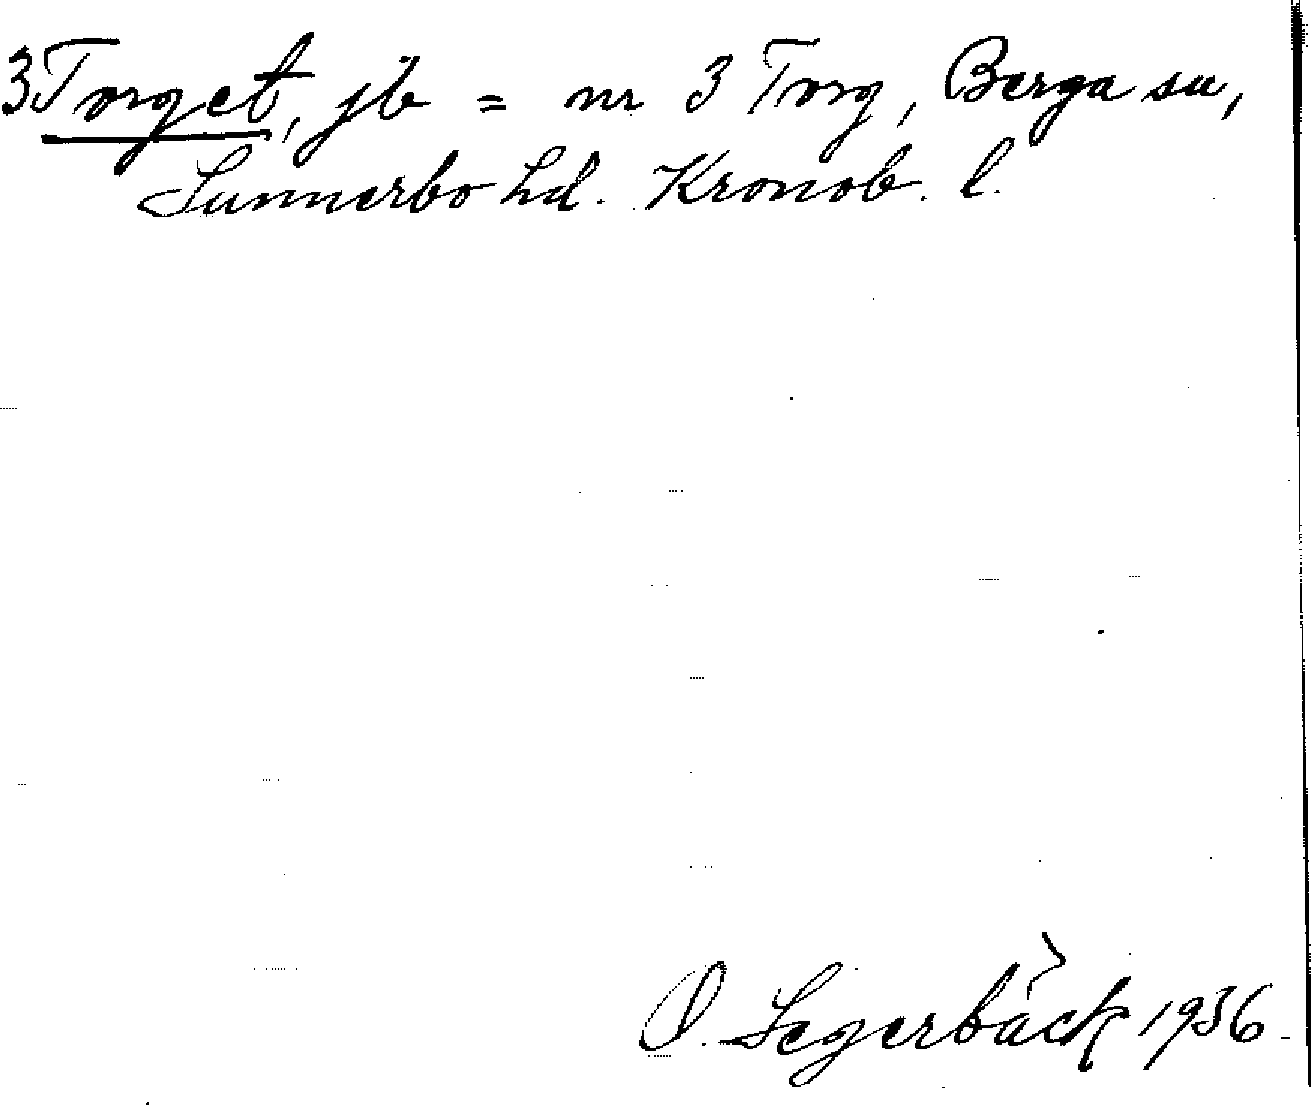 3 Torget, jb = nr 3 Torg, Berga sn,
Sunnerbo hd. Kronob. l.
O. Segerbäck 1936